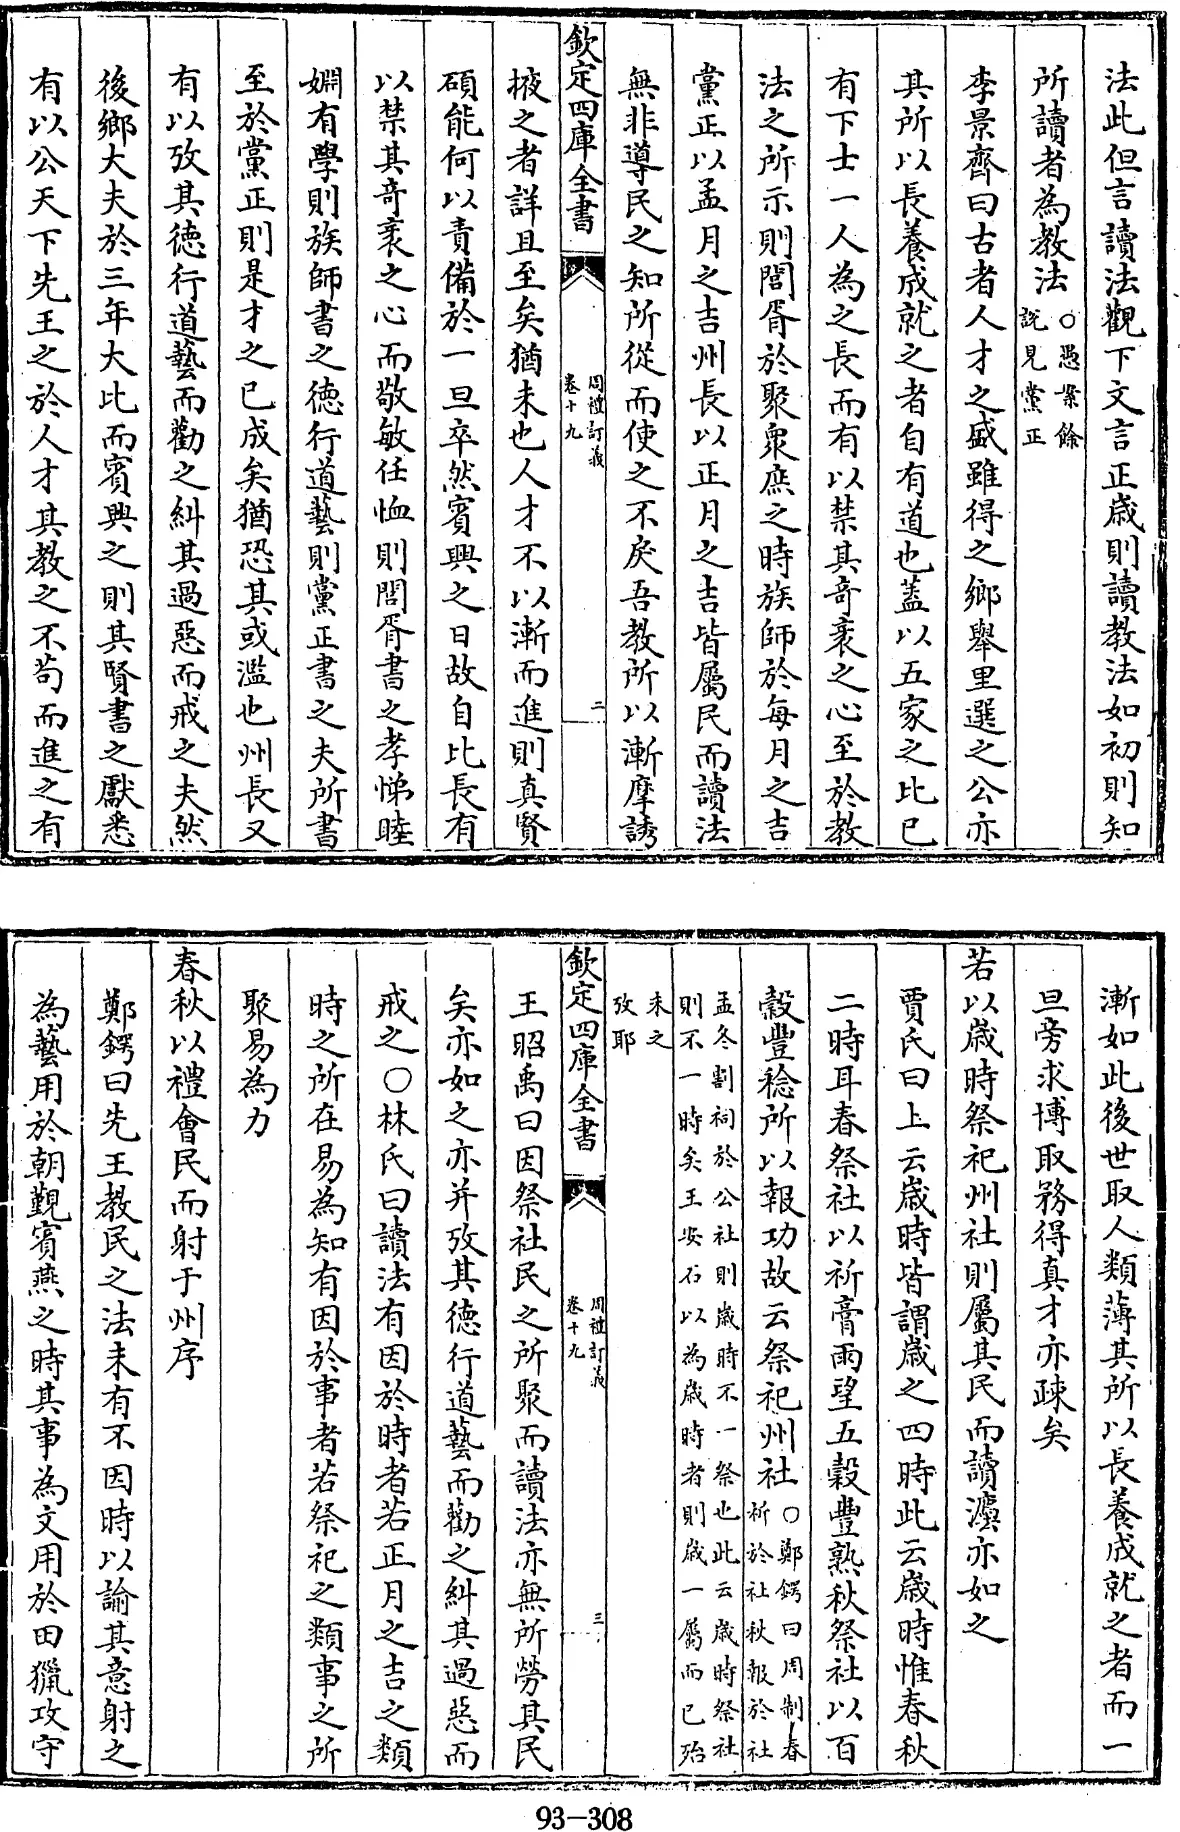 法此但言讀法觀下文言正歲則讀教法如初則知
所讀者為教法○愚案餘
說見黨正
李景齊曰古者人才之盛雖得之鄉舉里選之公亦
其所以長養成就之者自有道也蓋以五家之比已
有下士一人為之長而有以禁其奇衺之心至於教
法之所示則閭胥於聚衆庶之時族師於每月之吉
黨正以孟月之吉州長以正月之吉皆屬民而讀法
無非導民之知所從而使之不戾吾教所以漸摩誘
欽定四庫全書
周禮訂義
卷十九
二
掖之者詳且至矣猶未也人才不以漸而進則真賢
碩能何以責備於一旦卒然賓興之日故自比長有
以禁其奇衺之心而敬敏任恤則閭胥書之孝悌睦
婣有學則族師書之德行道藝則黨正書之夫所書
至於黨正則是才之已成矣猶恐其或濫也州長又
有以攷其德行道藝而勸之糾其過惡而戒之夫然
後鄉大夫於三年大比而賓興之則其賢書之獻悉
有以公天下先王之於人才其教之不茍而進之有
漸如此後世取人類薄其所以長養成就之者而一
旦旁求博取務得真才亦疎矣
若以歲時祭祀州社則屬其民而讀灋亦如之
賈氏曰上云歲時皆謂歲之四時此云歲時惟春秋
二時耳春祭社以祈膏雨望五穀豐熟秋祭社以百
穀豐稔所以報功故云祭祀州社○鄭鍔曰周制春
祈於社秋報於社
孟冬割祠於公社則歲時不一祭也此云歲時祭社
則不一時矣王安石以為歲時者則歲一屬而已殆
未之
攷耶
欽定四庫全書
周禮訂義
卷十九
三
王昭禹曰因祭社民之所聚而讀法亦無所勞其民
矣亦如之亦并攷其德行道藝而勸之糾其過惡而
戒之○林氏曰讀法有因於時者若正月之吉之類
時之所在易為知有因於事者若祭祀之類事之所
聚易為力
春秋以禮會民而射于州序
鄭鍔曰先王教民之法未有不因時以諭其意射之
為藝用於朝覲賓燕之時其事為文用於田獵攻守
93-308